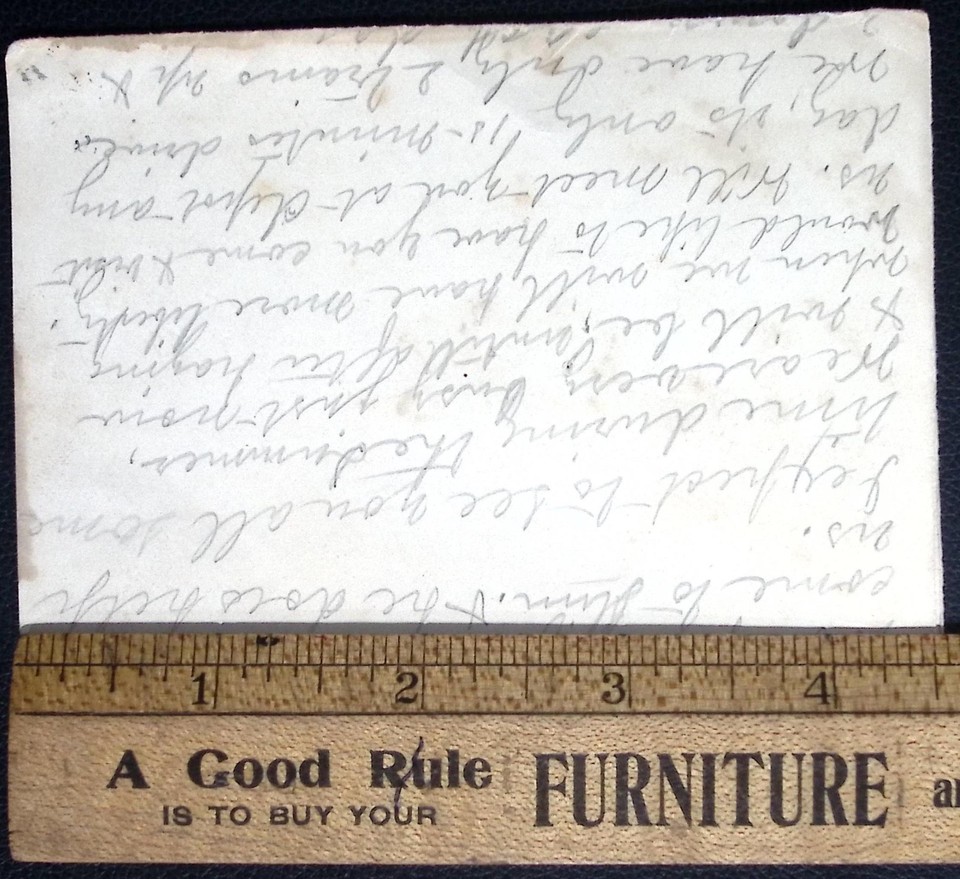 come to Him. & he does help
us.
I expect to see you all some
time during the Summer,
We are very busy just now
& will be, untill after haying
when we will have more liberty.
would like to have you come & visit
us. Will meet you at depot any
day, its only 15-minutes drive.
We have only 2 trains up &
2 down
1 2 3 4
A Good Rule
IS TO BUY YOUR
FURNITURE